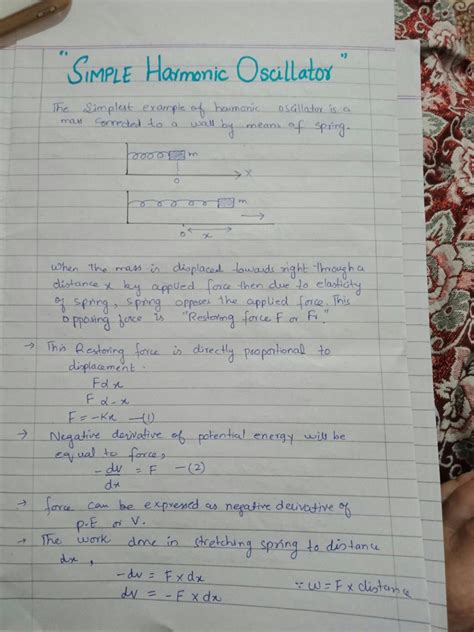 "SIMPLE Harmonic Oscillator"
The Simplest example of harmonic oscillator is a
mass connected to a wall by means of spring.
m
0
x
m
0
x
When The mass is displaced towards right through a
distance x by applied force then due to elasticity
of spring, spring opposes the applied force. This
opposing force is "Restoring force F or Fr"
→ This Restoring force is directly proportional to
displacement.
F α x
F α -x
F = -Kx —(1)
→ Negative derivative of potential energy will be
equal to force,
-dv/dx = F —(2)
→ force can be expressed as negative derivative of
P.E or V.
→ The work done in stretching spring to distance
dx,
-dv = F x dx ∵ w = F x distance
dv = -F x dx